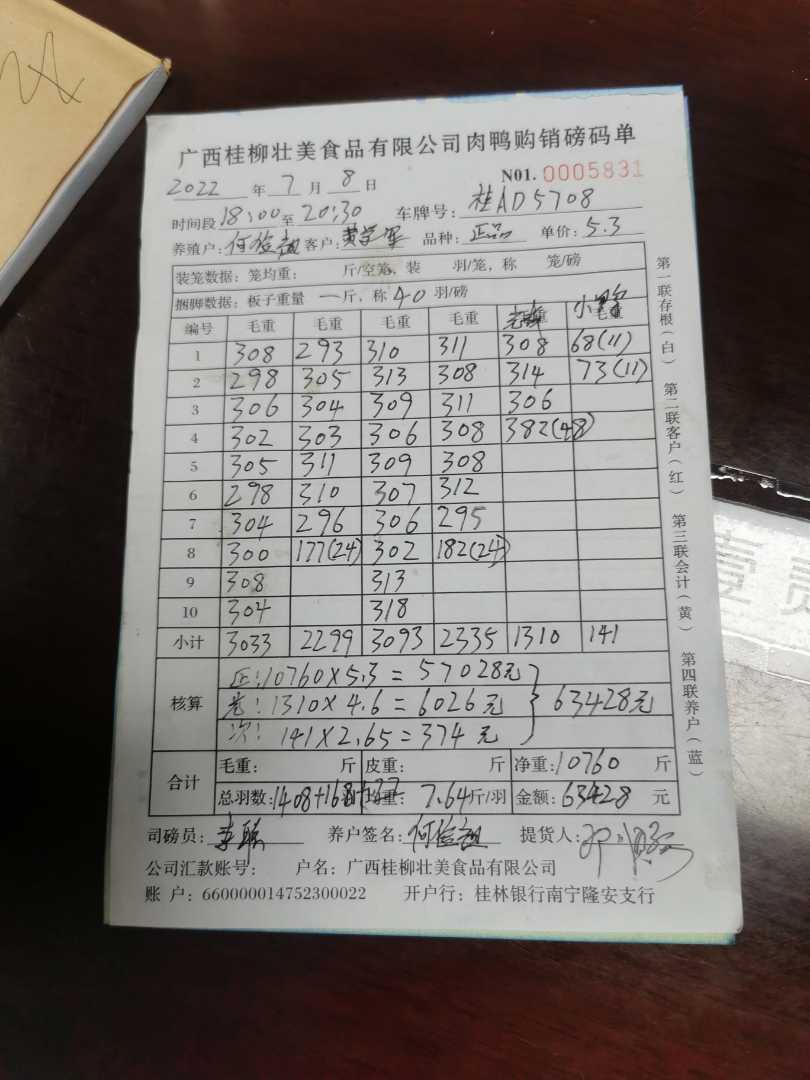 广西桂柳壮美食品有限公司肉鸭购销磅码单
N01. 0005831
2022 年 7 月 8 日
时间段 18:00 至 20:30 车牌号: 桂AD5708
养殖户: 何 客户: 黄 品种: 正品 单价: 5.3
装笼数据: 笼均重: 斤/空笼, 装 羽/笼, 称 笼/磅
捆脚数据: 板子重量 一 斤, 称 40 羽/磅
编号 毛重 毛重 毛重 毛重 毛重 毛重
1 308 293 310 311 308 68(11)
2 298 305 313 308 314 73(11)
3 306 304 309 311 306
4 302 303 306 308 382(48)
5 305 311 309 308
6 298 310 307 312
7 304 296 306 295
8 300 177(24) 302 182(24)
9 308 313
10 304 318
小计 3033 2299 3093 2335 1310 141
核算
正:10760×5.3=57028元
1310×4.6=6026元
次:141×2.65=374元
63428元
合计 毛重: 斤 皮重: 斤 净重: 10760 斤
总羽数: 1408+168+22 均重: 7.64 斤/羽 金额: 63428 元
司磅员: 李 养户签名: 何 提货人:
公司汇款账号: 户名: 广西桂柳壮美食品有限公司
账 户: 660000014752300022 开户行: 桂林银行南宁隆安支行
第一联存根(白) 第二联客户(红) 第三联会计(黄) 第四联养户(蓝)
壹贡